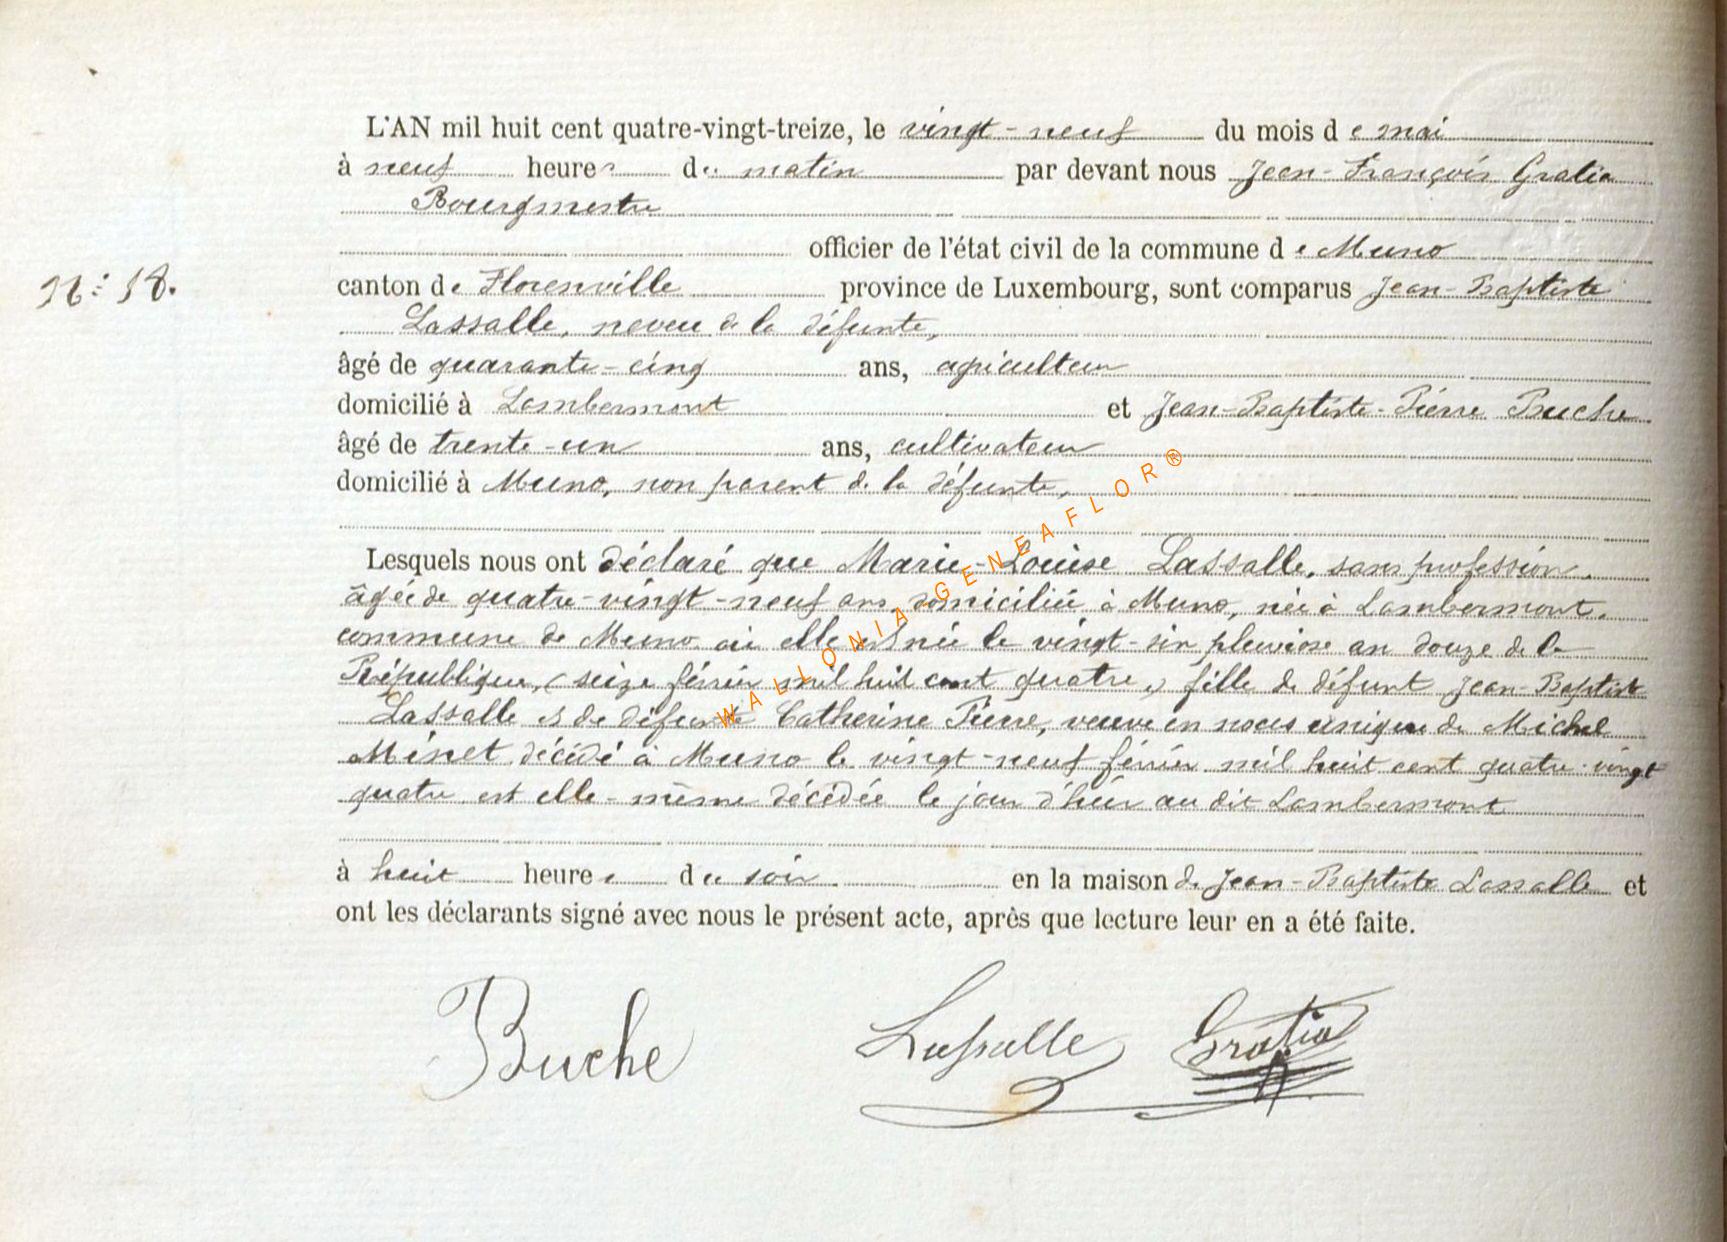 L'AN mil huit cent quatre-vingt-treize, le vingt-neuf du mois de mai
à neuf heures du matin par devant nous Jean-François Gratia
Bourgmestre
officier de l'état civil de la commune de Muno
N° 18.
canton de Florenville province de Luxembourg, sont comparus Jean-Baptiste
Lassalle, neveu de la défunte,
âgé de quarante-cinq ans, agriculteur
domicilié à Lambermont et Jean-Baptiste-Pierre Buche
âgé de trente-un ans, cultivateur
domicilié à Muno, non parent de la défunte,
Lesquels nous ont déclaré que Marie-Louise Lassalle, sans profession,
âgée de quatre-vingt-neuf ans, domiciliée à Muno, née à Lambermont,
commune de Muno où elle est née le vingt-six pluviose an douze de la
République, (seize février mil huit cent quatre,) fille de défunt Jean-Baptiste
Lassalle et de défunte Catherine Pierre, veuve en noces unique de Michel
Minet décédé à Muno le vingt-neuf février mil huit cent quatre-vingt
quatre est elle-même décédée le jour d'hier au dit Lambermont
à huit heures du soir en la maison de Jean-Baptiste Lassalle et
ont les déclarants signé avec nous le présent acte, après que lecture leur en a été faite.
Buche Lassalle Gratia
WALLONIA-GENEAFLOR®